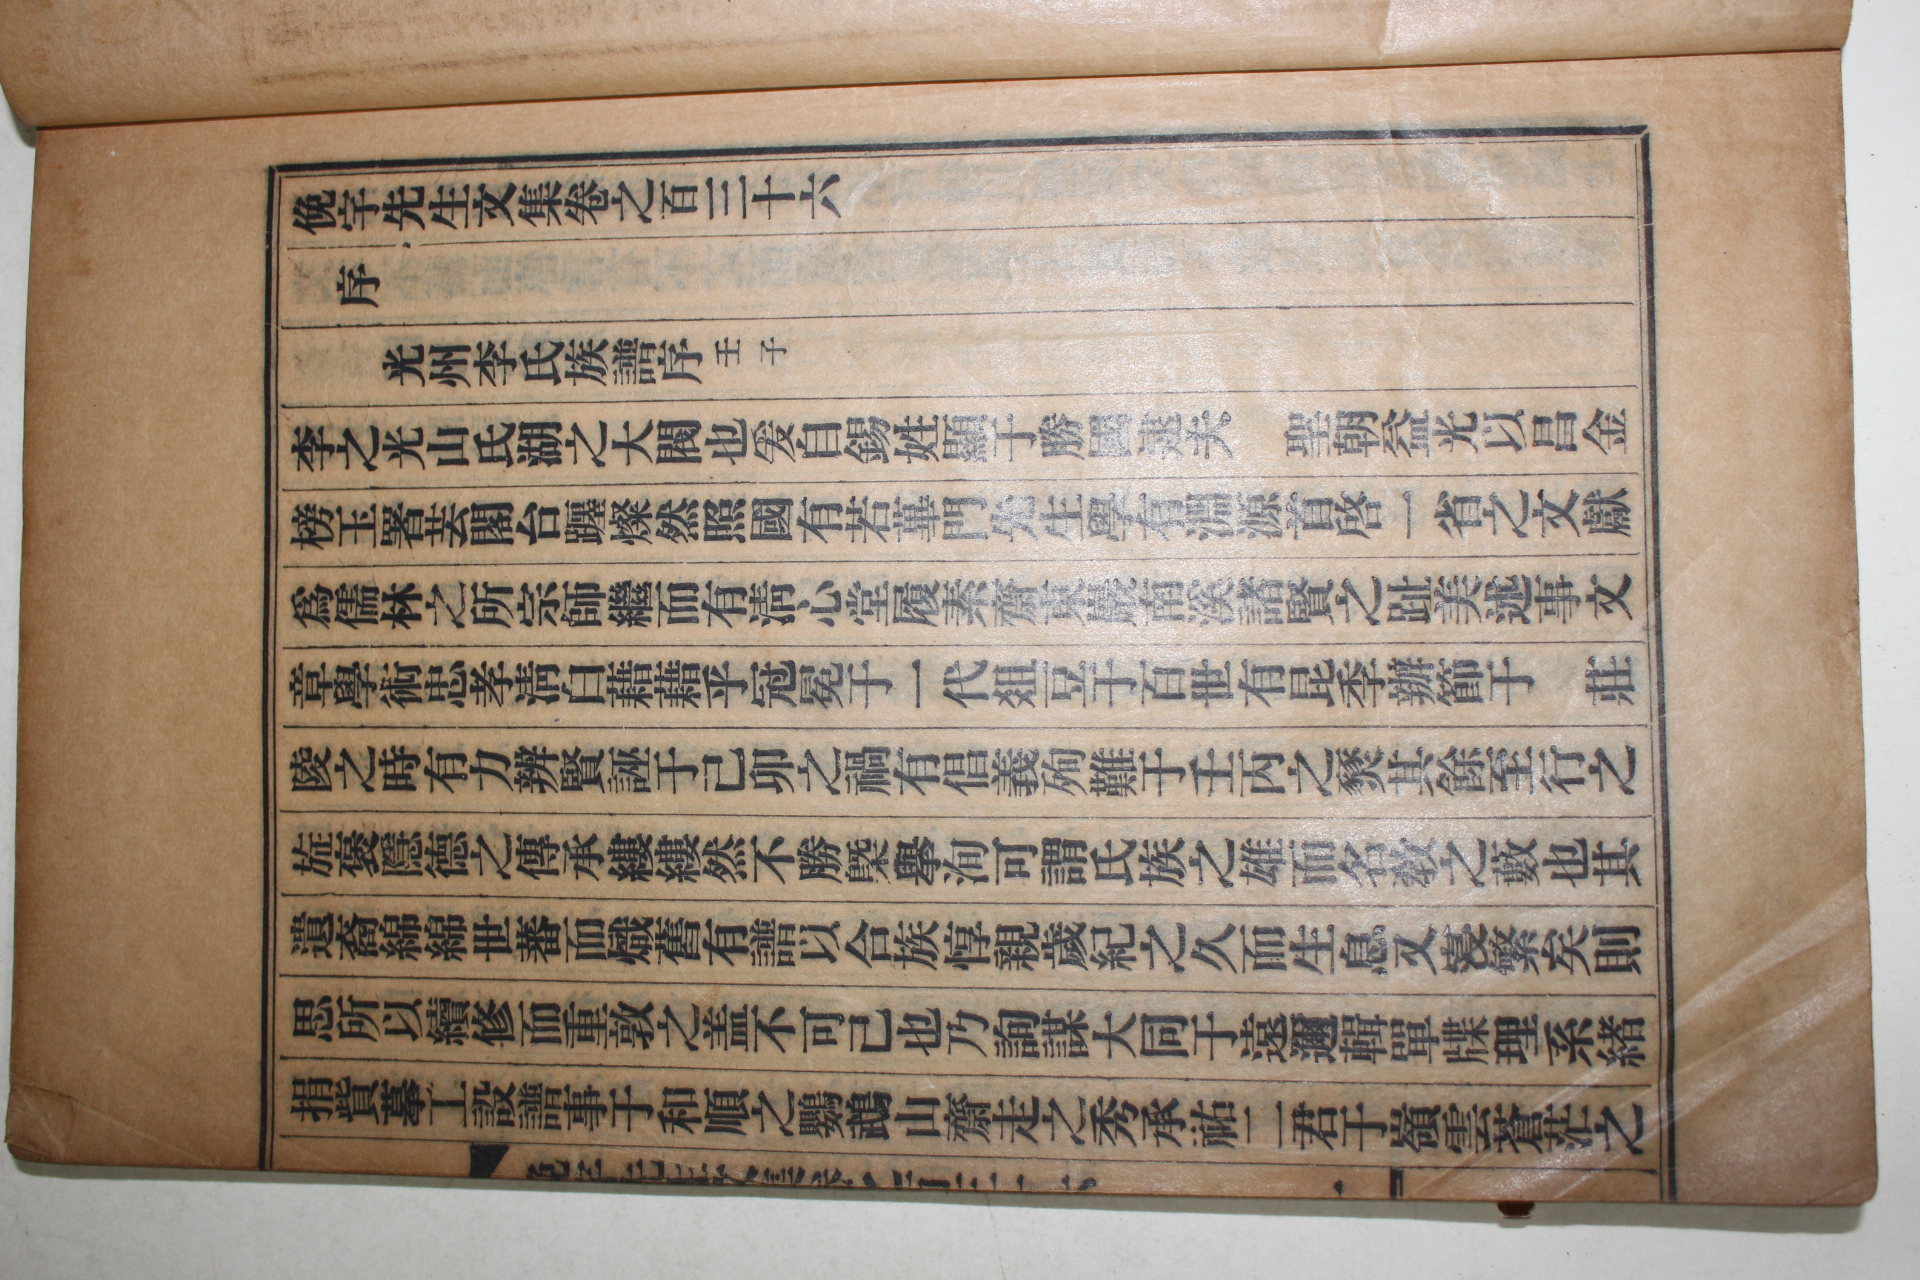 俛宇先生文集卷之百三十六
序
光州李氏族譜序 壬子
李之光山氏湖之大閥也爰自錫姓顯于勝國遠矣 聖朝益光以昌金
榜玉署芸閣台躔燦然照國有若華門先生學有淵源首啓一省之文獻
爲儒林之所宗師繼而有淸心堂履素齋東巖南溪諸賢之趾美述事文
章學術忠孝淸白藉藉乎冠冕于一代俎豆于百世有昆季辦節于 莊
陵之時有力辨賢誣于己卯之禍有倡義殉難于壬丙之燹其餘至行之
旌褒隱德之傳承縷縷然不勝槩擧洵可謂氏族之雄而名敎之藪也其
遺裔綿綿世蕃而熾舊有譜以合族惇親歲紀之久而生息又寖繁矣則
思所以續修而重敦之盖不可已也乃詢謀大同于遠邇輯單牒理系緖
捐貲募工設譜事于和順之鸚鵡山齋走之秀承祐二君于嶺雲蒼茫之